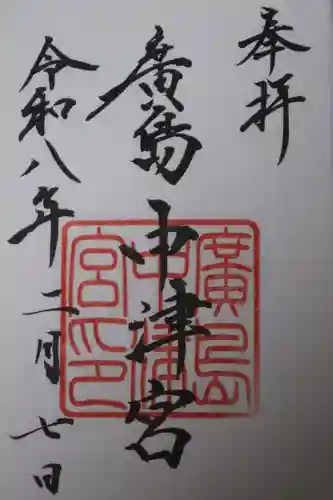 奉拝
廣島中津宮
令和八年二月七日
廣島
中津
宮印